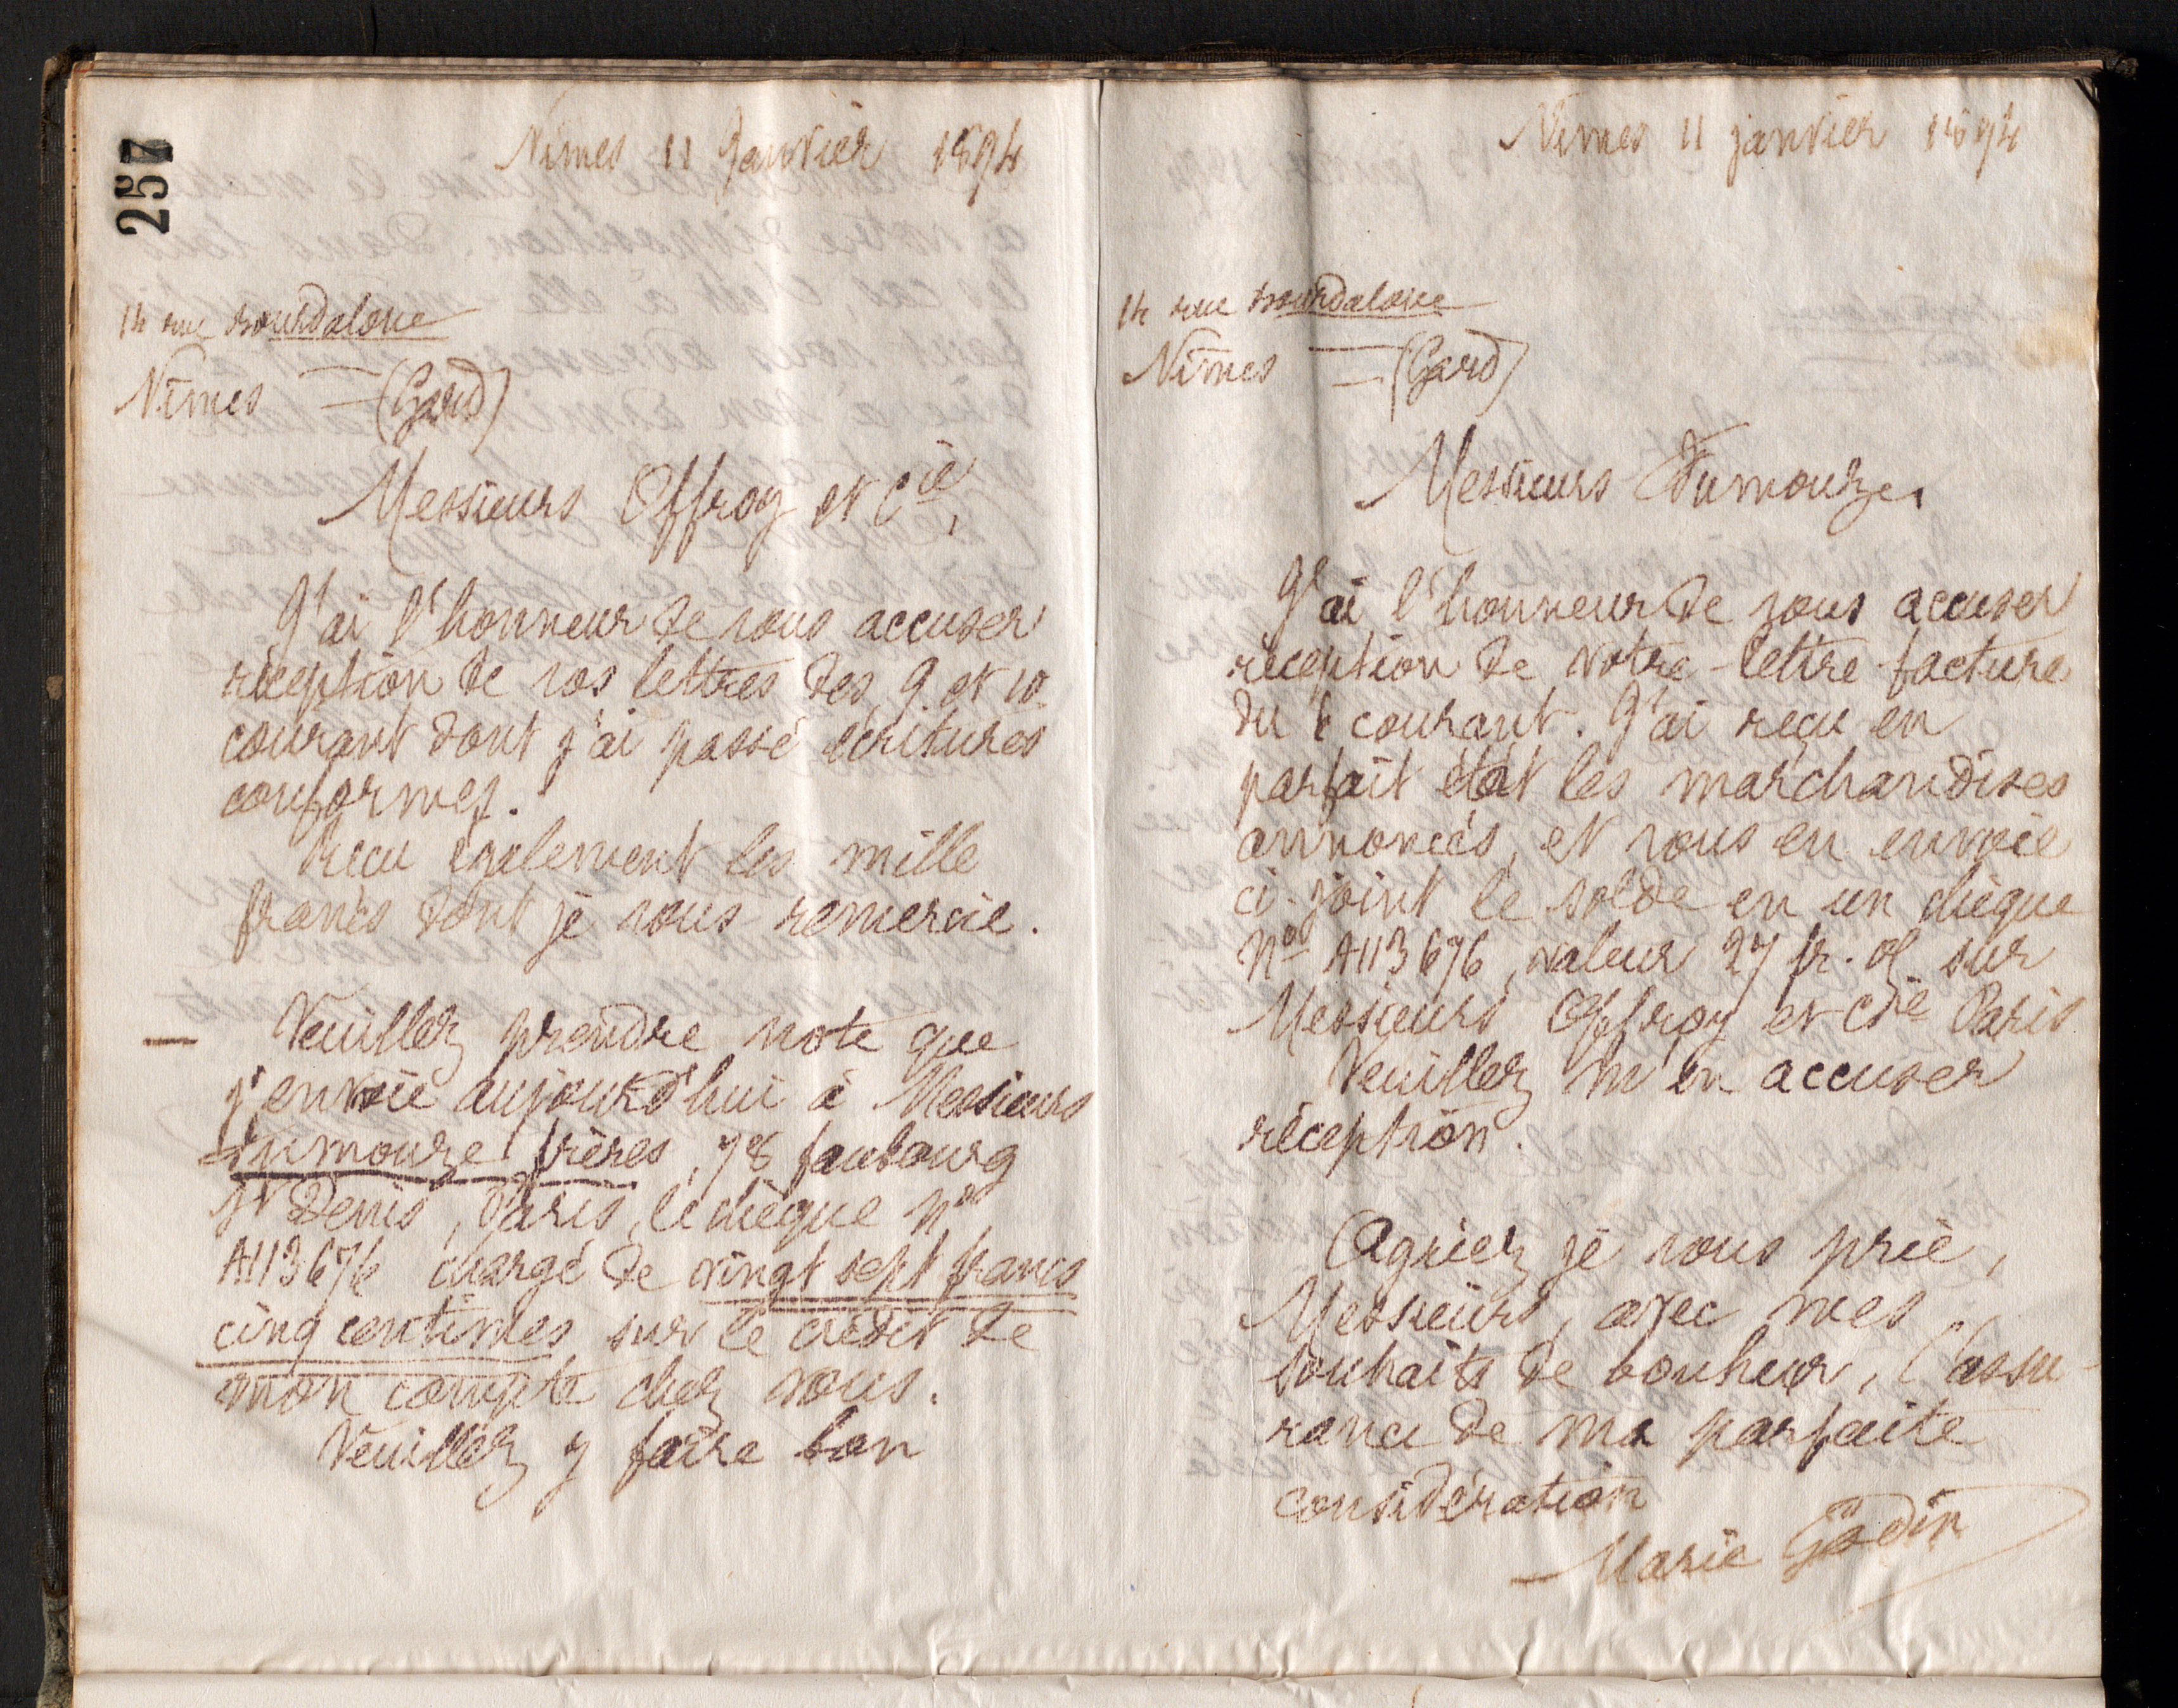 257
Nîmes 11 Janvier 1894
14 rue Bourdaloue
Nîmes = (Gard)
Messieurs Offroy et Cie,
J'ai l'honneur de vous accuser
réception de vos lettres des 9 et 10
courant dont j'ai passé écritures
conformes.
Reçu également les mille
francs dont je vous remercie.
— Veuillez prendre note que
j'envoie aujourd'hui à Messieurs
Dumouze frères, 78 faubourg
St Denis, Paris, le chèque no
A113676 chargé de vingt sept francs
cinq centimes sur le crédit de
mon compte chez vous.
Veuillez y faire bon
Nîmes 11 janvier 1894
14 rue Bourdaloue
Nîmes = (Gard)
Messieurs Dumouze
J'ai l'honneur de vous accuser
réception de votre lettre facture
du courant. J'ai reçu en
parfait état les marchandises
annoncées, et vous en envoie
ci-joint le solde en un chèque
No A113676, valeur 27 fr. 05 sur
Messieurs Offroy et Cie Paris
Veuillez m'en accuser
réception.
Agréez je vous prie,
Messieurs, avec mes
souhaits de bonheur, l'assu
rance de ma parfaite
considération
Marie Godin